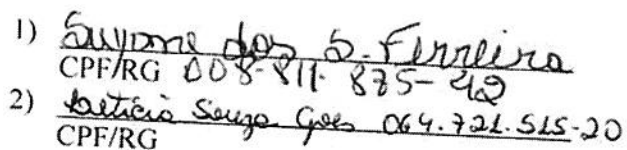 1) Suyane dos S. Ferreira
CPF/RG 008.811.875-42
2) Letícia Souza Goes 064.721.515-20
CPF/RG